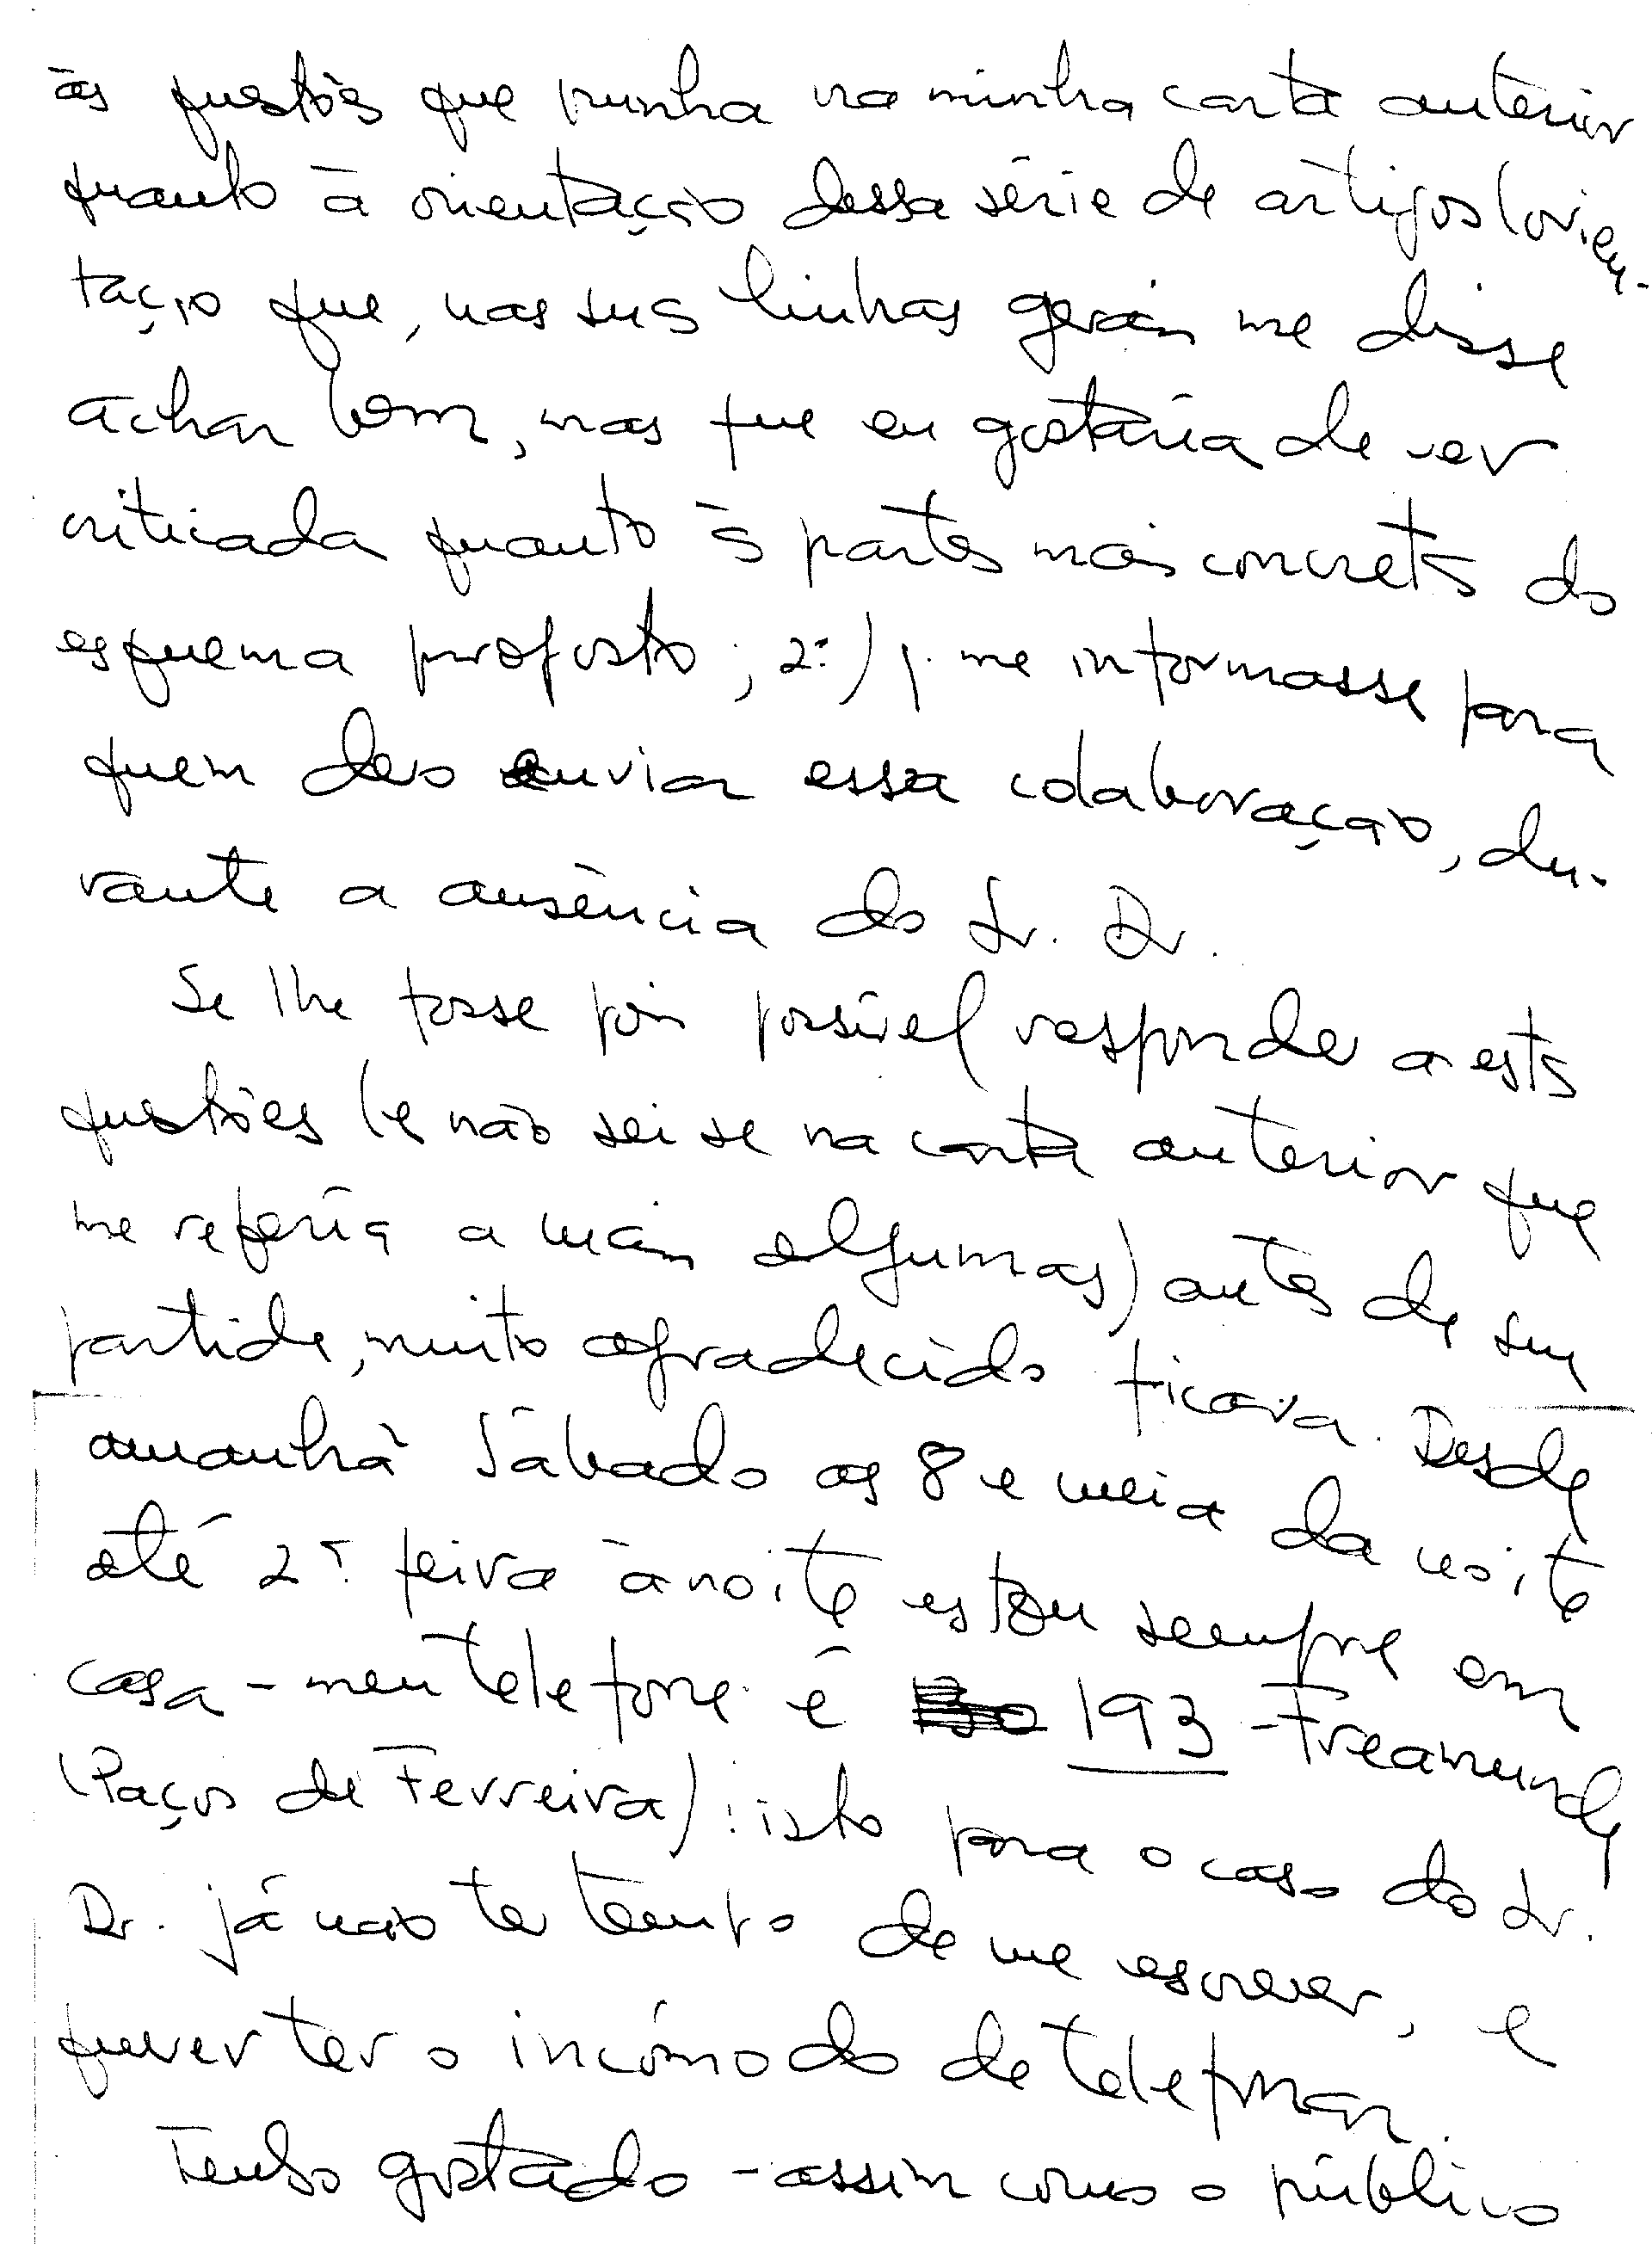 às questões que punha na minha carta anterior
quanto à orientação dessa série de artigos (orien-
tação que, nas suas linhas gerais me disse
achar bem, mas que eu gostaria de ver
criticada quanto às partes mais concretas do
esquema proposto; 2º) q. me informasse para
quem devo enviar essa colaboração, du-
rante a ausência do Sr. Dr.
Se lhe fosse pois possível responder a estas
questões (e não sei se na carta anterior que
me referia a mais algumas) antes de sua
partida, muito agradecido ficava. Desde
amanhã Sábado às 8 e meia da noite
até 2ª feira à noite estou sempre em
casa - meu telefone é 193 - Freamunde
(Paços de Ferreira): isto para o caso do Sr.
Dr. já não ter tempo de me escrever, e
querer ter o incómodo de telefonar.
Tenho gostado - assim como o público